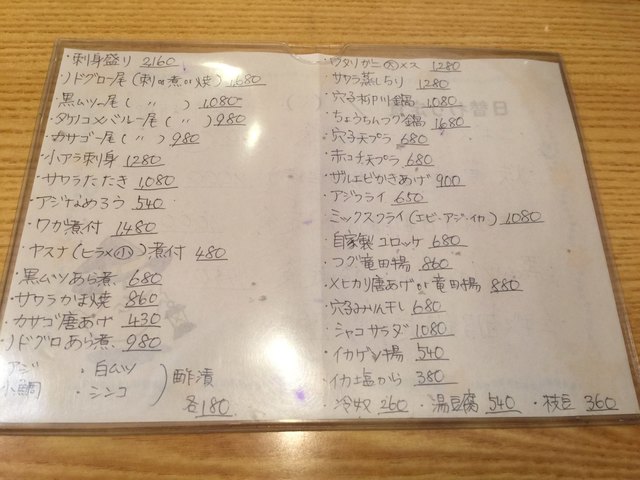 ・刺身盛り 2,160
・ノドグロ一尾(刺or煮or焼) 1,680
・黒ムツ一尾( 〃 ) 1,080
・タケノコメバル一尾( 〃 ) 980
・カサゴ一尾( 〃 ) 980
・小アラ刺身 1280
・サワラたたき 1,080
・アジなめろう 540
・ワガ煮付 1480
・ヤスナ(ヒラメ小)煮付 480
・黒ムツあら煮 680
・サワラかま焼 860
・カサゴ唐あげ 430
・ノドグロあら煮 980
アジ ・白ムツ
小鯛 ・シンコ ) 酢漬
各180
・ワタリガニ 大 メス 1280
・サワラ蒸しちり 1280
・穴子柳川鍋 1,080
・ちょうちんフグ鍋 1680
・穴子天プラ 680
・赤コチ天プラ 680
・ザルエビかきあげ 900
・アジフライ 650
・ミックスフライ(エビ・アジ・イカ) 1080
・自家製コロッケ 680
・フグ竜田揚 860
・メヒカリ唐あげor竜田揚 880
・穴子みりん干し 680
・シャコサラダ 1080
・イカゲソ揚 540
・イカ塩から 380
・冷奴 260 ・湯豆腐 540 ・枝豆 360